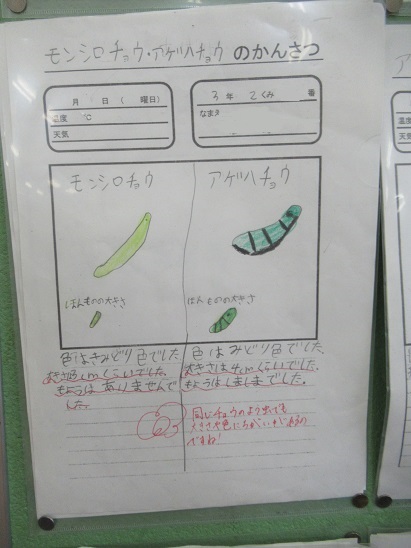 モンシロチョウ・アゲハチョウ のかんさつ
月 日 ( 曜日)
温度 ℃
天気
3年 2くみ 番
なまえ
モンシロチョウ
アゲハチョウ
ほんものの大きさ
ほんものの大きさ
色はきみどり色でした
大きさは3cmくらいでした。
もようはありませんで
した。
色はみどり色でした。
大きさは4cmくらいでした。
もようはしましまでした。
同じチョウのよう虫でも
大きさや色にちがいがあるの
ですね!